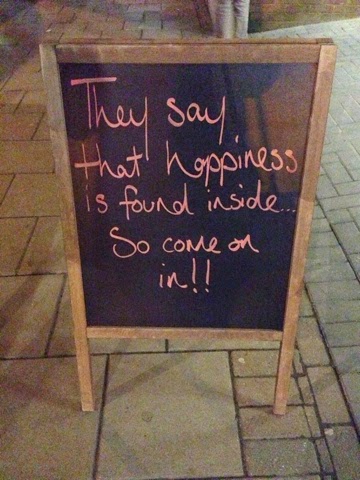 They say
that happiness
is found inside...
So come on
in!!